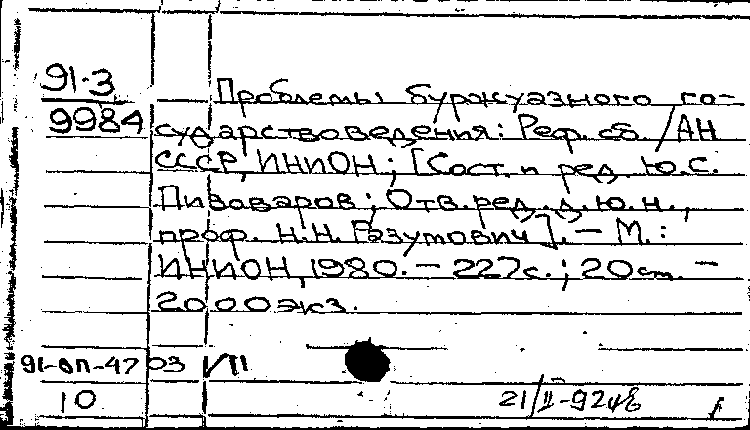 91-3
9984
Проблемы буржуазного го-
сударствоведения: Реф. сб. / АН
СССР, ИНИОН; [Сост. и ред. Ю.С.
Пивоваров; Отв. ред. д.ю.н.,
проф. Н.Н. Разумович]. – М.:
ИНИОН, 1980. – 227с.; 20 см. –
2000 экз.
91-оп-47 03 VII
10
21/II-92